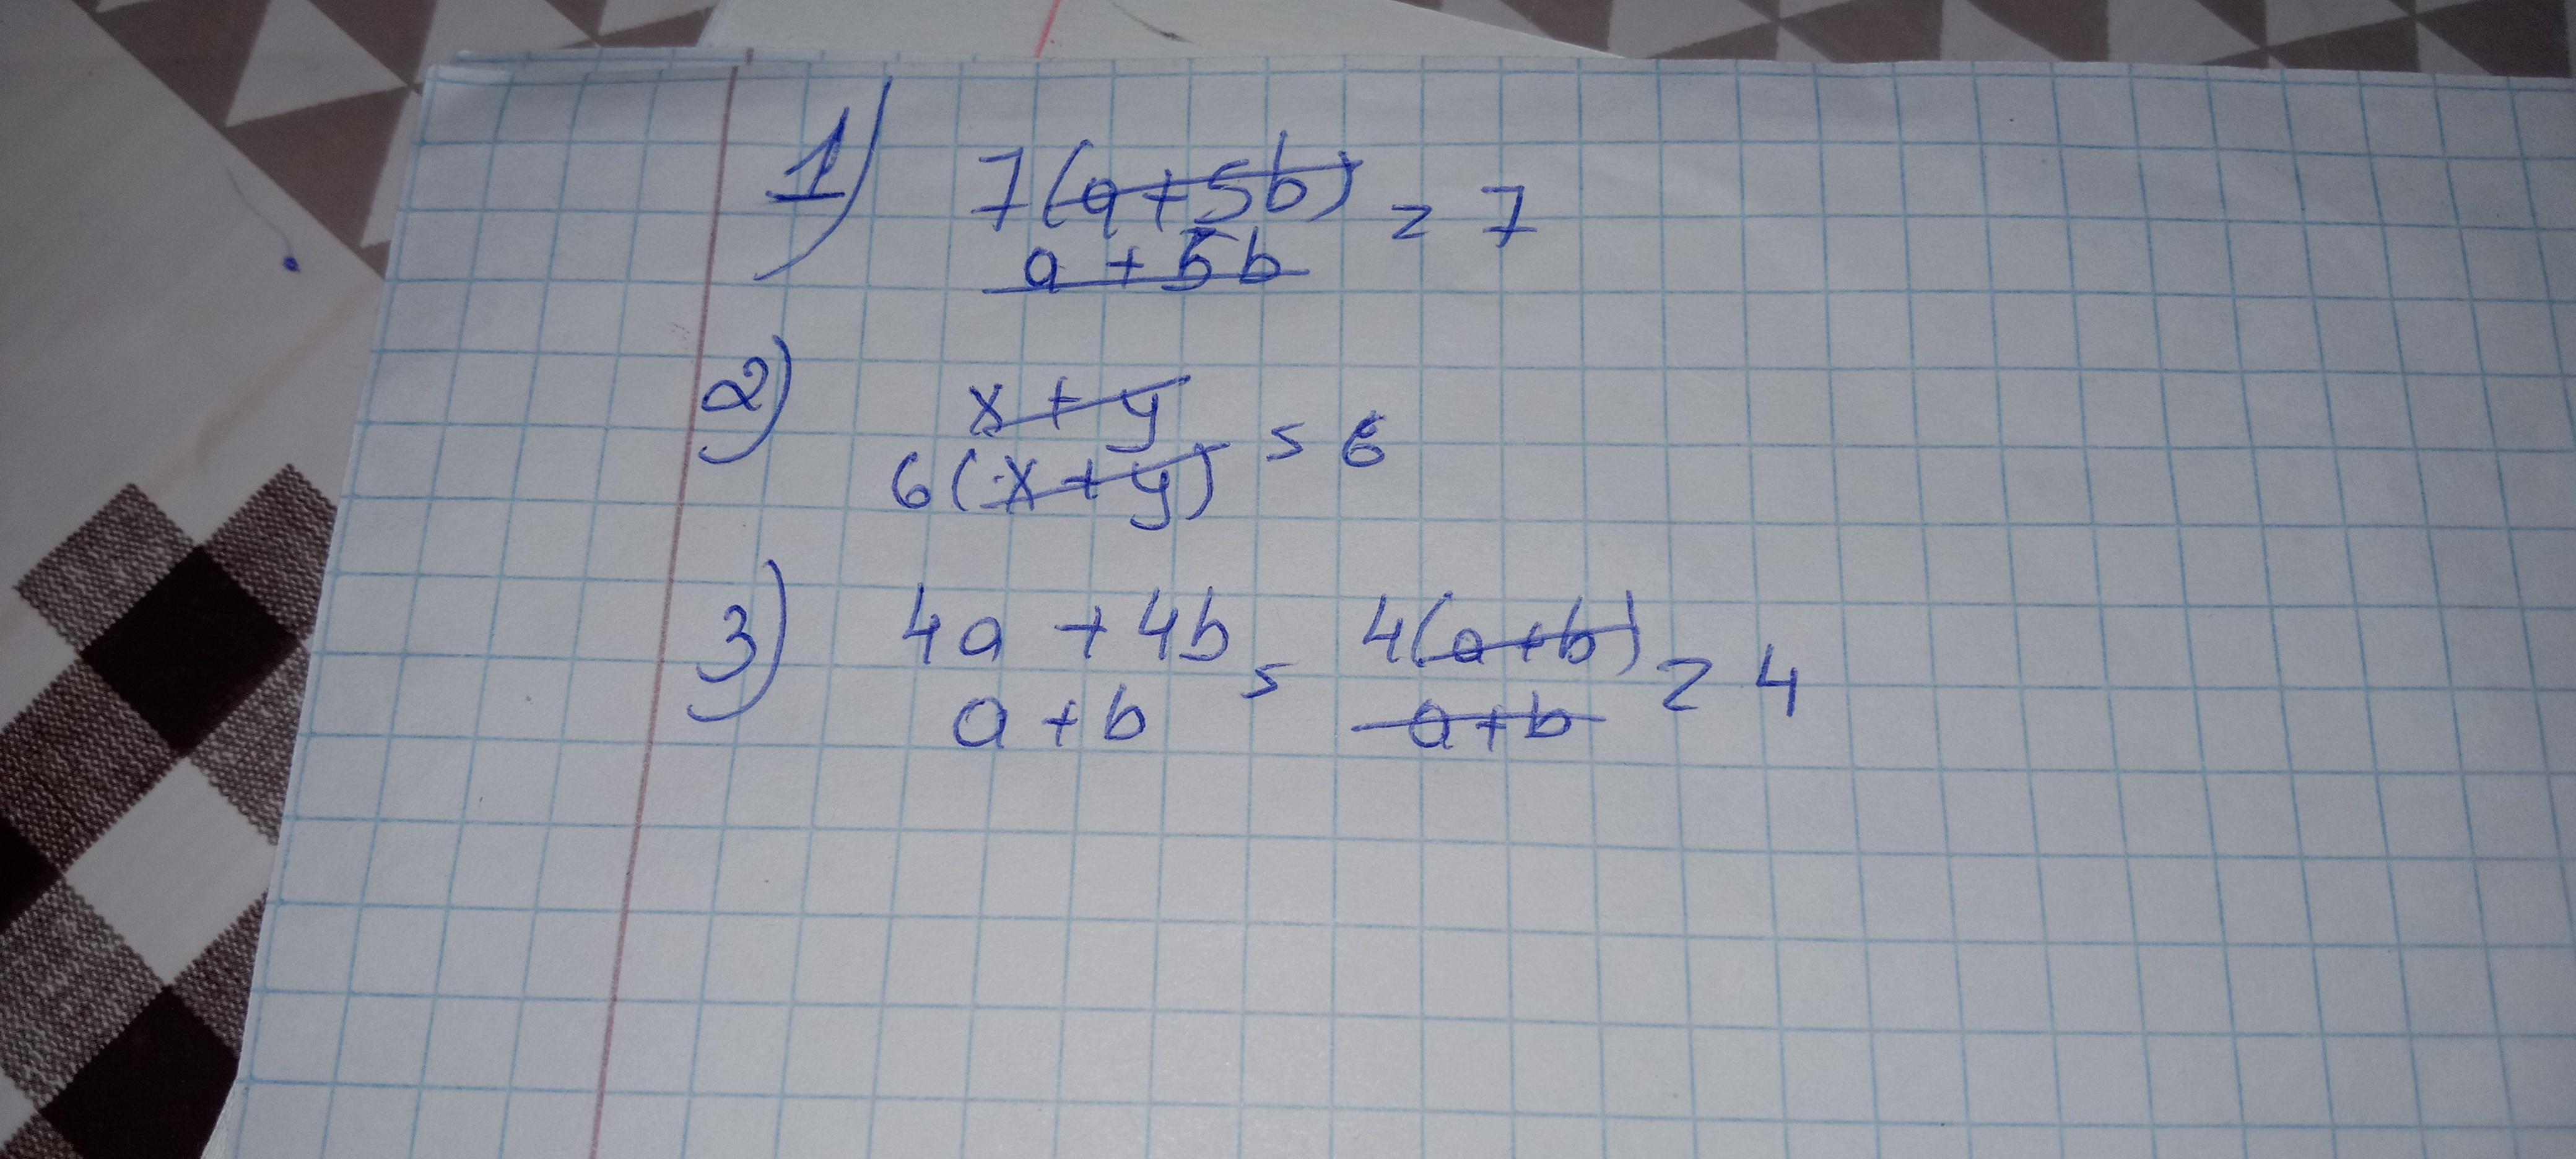 1) 7(a+5b) = 7
a+5b
2) x+y
6(x+y) = 6
3) 4a+4b = 4(a+b) = 4
a+b a+b